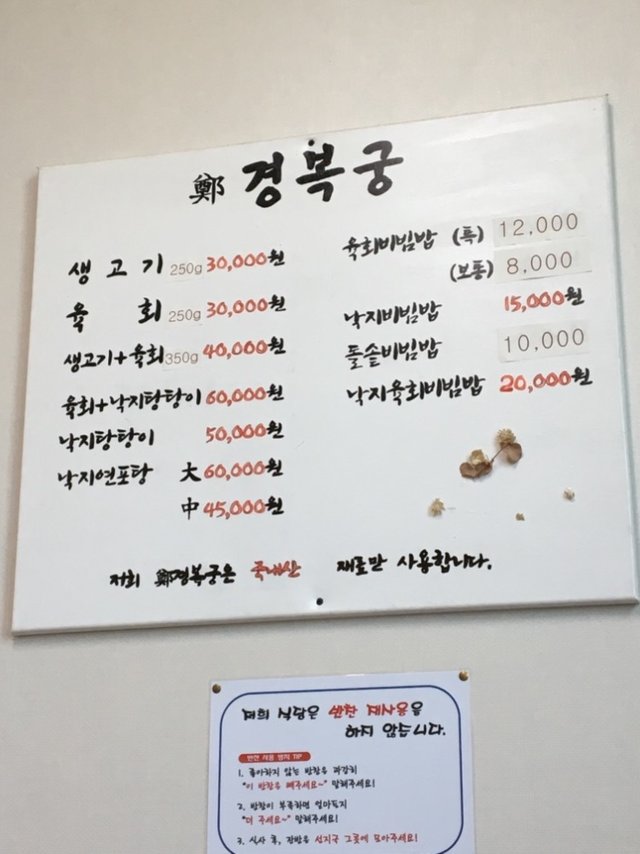 鄭 경복궁
생고기 250g 30,000원
육회 250g 30,000원
생고기+육회 350g 40,000원
육회+낙지탕탕이 60,000원
낙지탕탕이 50,000원
낙지연포탕 大 60,000원
中 45,000원
육회비빔밥 (특) 12,000
(보통) 8,000
낙지비빔밥 15,000원
돌솥비빔밥 10,000
낙지육회비빔밥 20,000원
저희 鄭경복궁은 국내산 재료만 사용합니다.
저희 식당은 반찬 재사용을
하지 않습니다.
반찬 사용 방지 TIP
1. 좋아하지 않는 반찬은 과감히
"이 반찬은 빼주세요~" 말해주세요!
2. 반찬이 부족하면 얼마든지
"더 주세요~" 말해주세요!
3. 식사 후, 잔반은 선지국 그릇에 모아주세요!